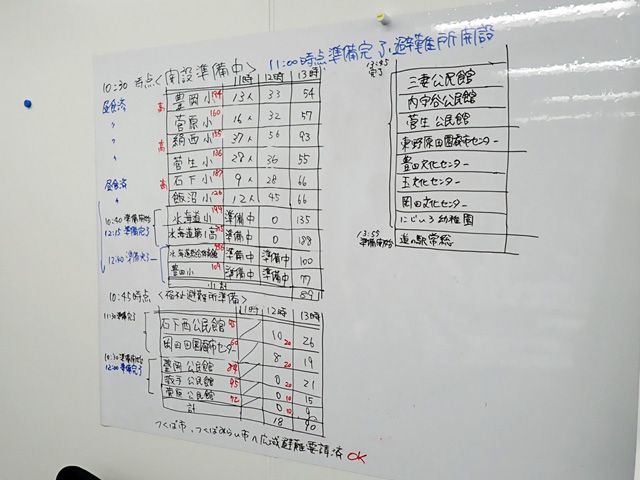 11:00時点準備完了、避難所開設
10:30 時点<開設準備中>
11時 12時 13時
昼食済 高 豊岡小 194 13人 33 54
〃 菅原小 160 16人 32 57
〃 高 絹西小 135 37人 56 93
〃 菅生小 136 28人 36 55
昼食済 高 石下小 187 9人 28 66
〃 飯沼小 126 12人 45 66
10:40 準備開始 水海道小 194 準備中 0 135
12:15 準備完了 水海道第1高 準備中 0 188
12:40 準備完了 準備中 準備中 100
豊田小 104 準備中 準備中 77
小計 89
10:45時点 <福祉避難所準備>
11時 12時 13時
11:30準備完了 石下西公民館 95 10 20 26
岡田田園都市センター 60 8 20 19
10:30 準備開始 豊岡公民館 0 20 21
12:00 準備完了 公民館 95 0 10 15
公民館 72 0 10 9
計 18 90
つくば市、つくばみらい市へ広域避難要請済 OK
13:45
完了
三妻公民館
内守谷公民館
菅生公民館
東野原田園都市センター
豊田文化センター
玉文化センター
岡田文化センター
にじいろ幼稚園
13:55
準備開始 道の駅常総